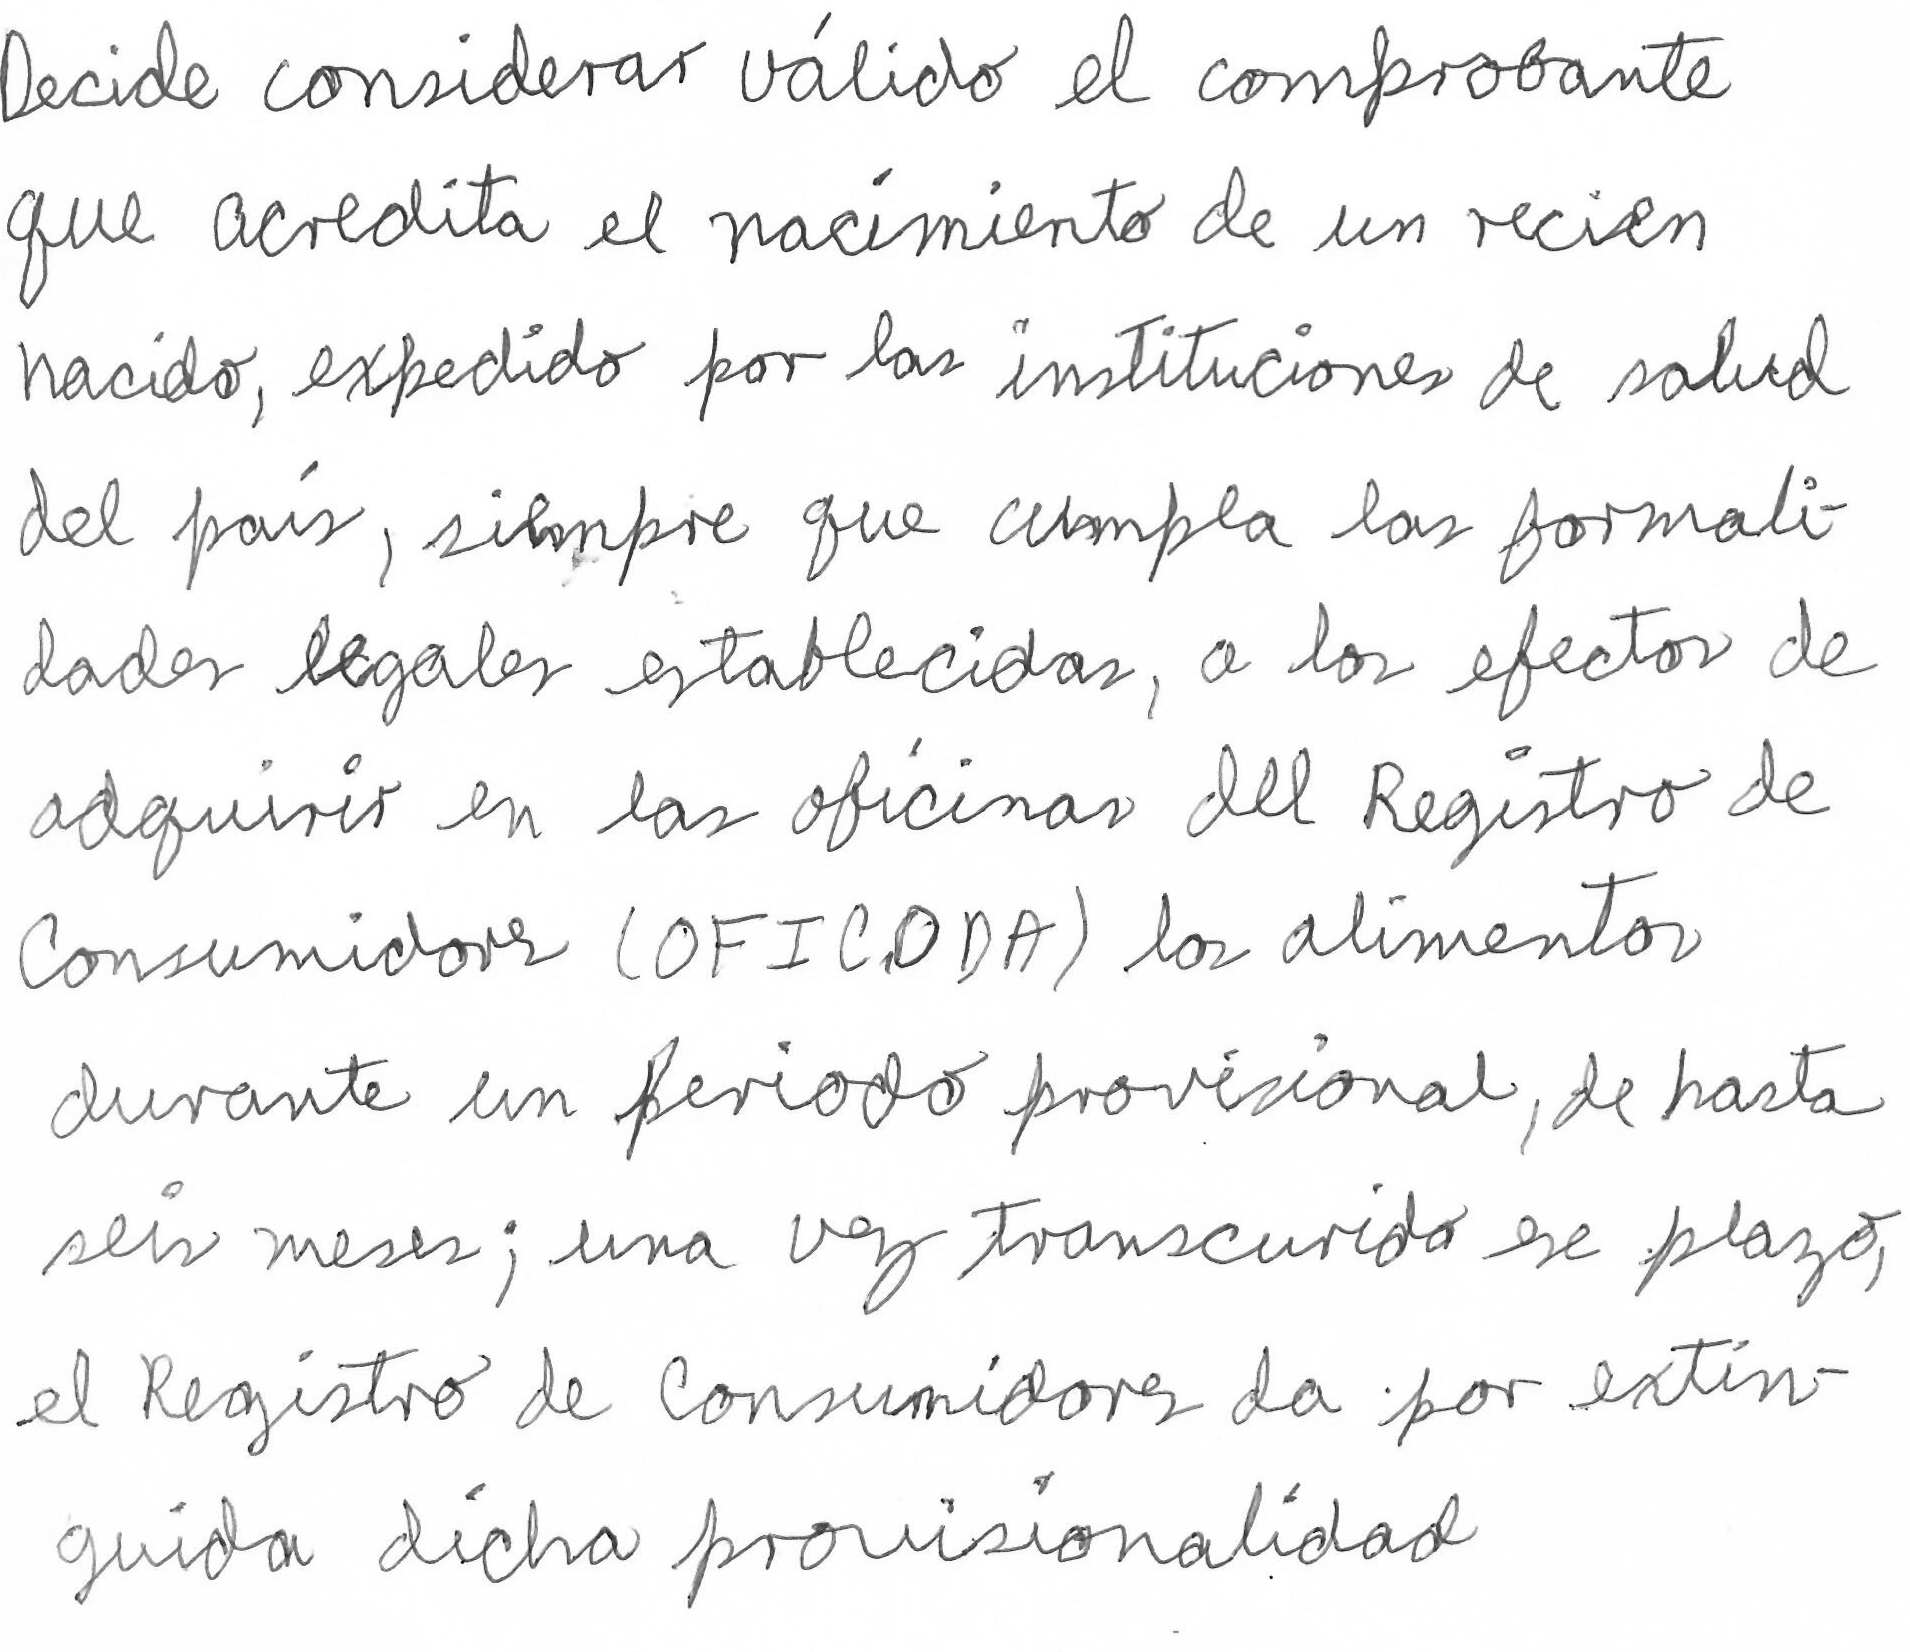 Decide considerar válido el comprobante
que acredita el nacimiento de un recien
nacido, expedido por las instituciones de salud
del país, siempre que cumpla las formali-
dades legales establecidas, a los efectos de
adquirir en las oficinas del Registro de
Consumidores (OFICODA) los alimentos
durante un periodo provisional, de hasta
seis meses; una vez transcurido ese plazo,
el Registro de Consumidores da por extin-
guida dicha provisionalidad